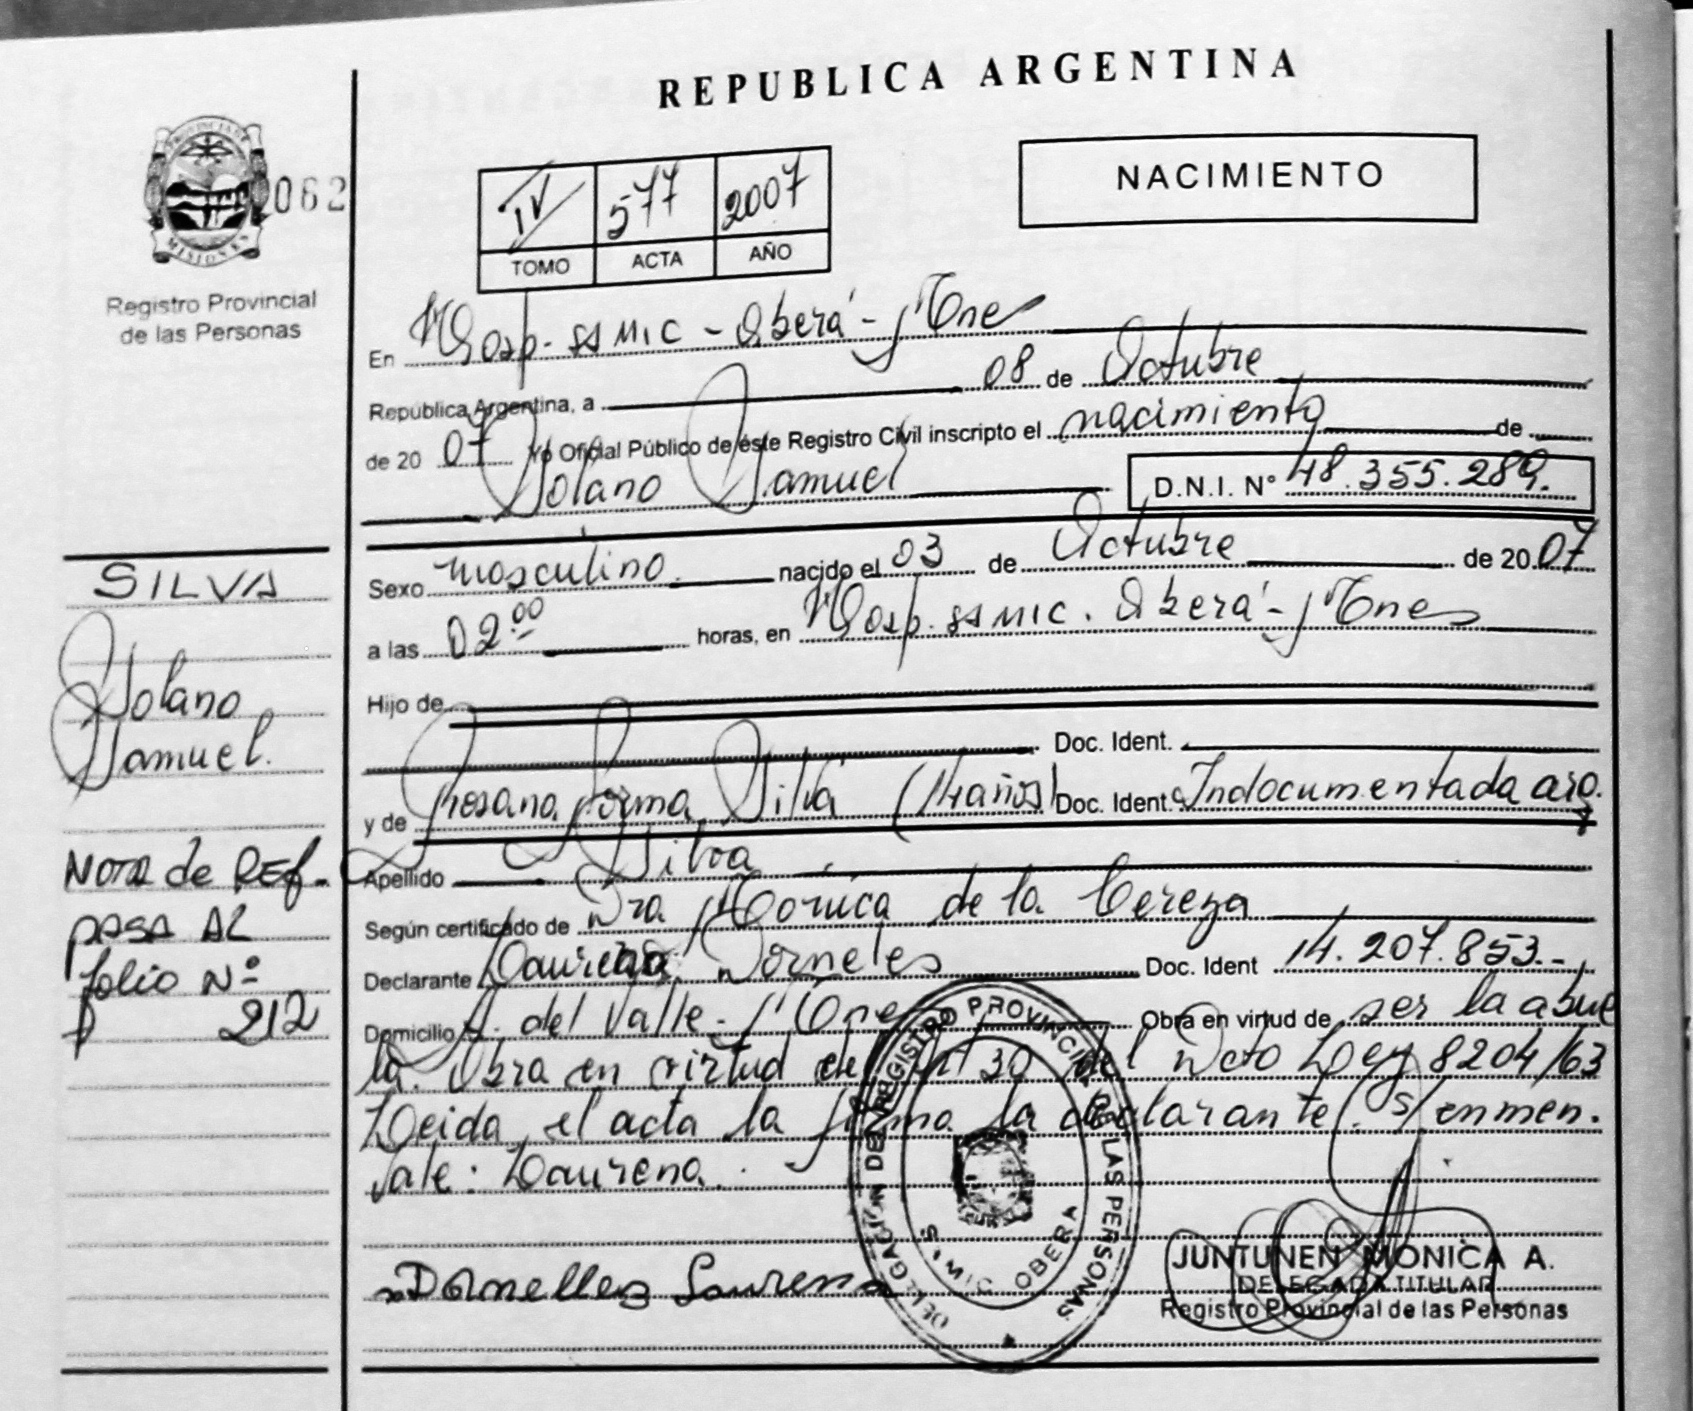 REPUBLICA ARGENTINA
PROVINCIA DE MISIONES
062
Registro Provincial
de las Personas
IV 577 2007
TOMO ACTA AÑO
NACIMIENTO
En Hosp. SSMIC - Oberá - Mnes
República Argentina, a 08 de Octubre
de 20 07 Yo Oficial Público de éste Registro Civil inscripto el nacimiento de
Solano Samuel D.N.I. Nº 48.355.289.
Sexo masculino nacido el 03 de Octubre de 20 07
a las 02.00 horas, en Hosp. SSMIC. Oberá - Mnes
Hijo de
Doc. Ident.
y de Rosana Norma Silva (14 años) Doc. Ident. Indocumentada arg.
Apellido Silva
Según certificado de Dra Mónica de la Cereza
Declarante Laurena Dorneles Doc. Ident 14.207.853.-
Domicilio A. del Valle - Mnes Obra en virtud de ser la abue
la. Obra en virtud del Art 30 del Dcto Ley 8204/63
Leida el acta la firma la declarante. S/enmen.
Vale: Laurena.
Dornelles Laurena
DELEGACION DEL REGISTRO PROVINCIAL DE LAS PERSONAS
S.MIC OBERA
JUNTUNEN MONICA A.
DELEGADA TITULAR
Registro Provincial de las Personas
SILVA
Solano
Samuel.
NOTA de REF.
PASA AL
folio Nº
212